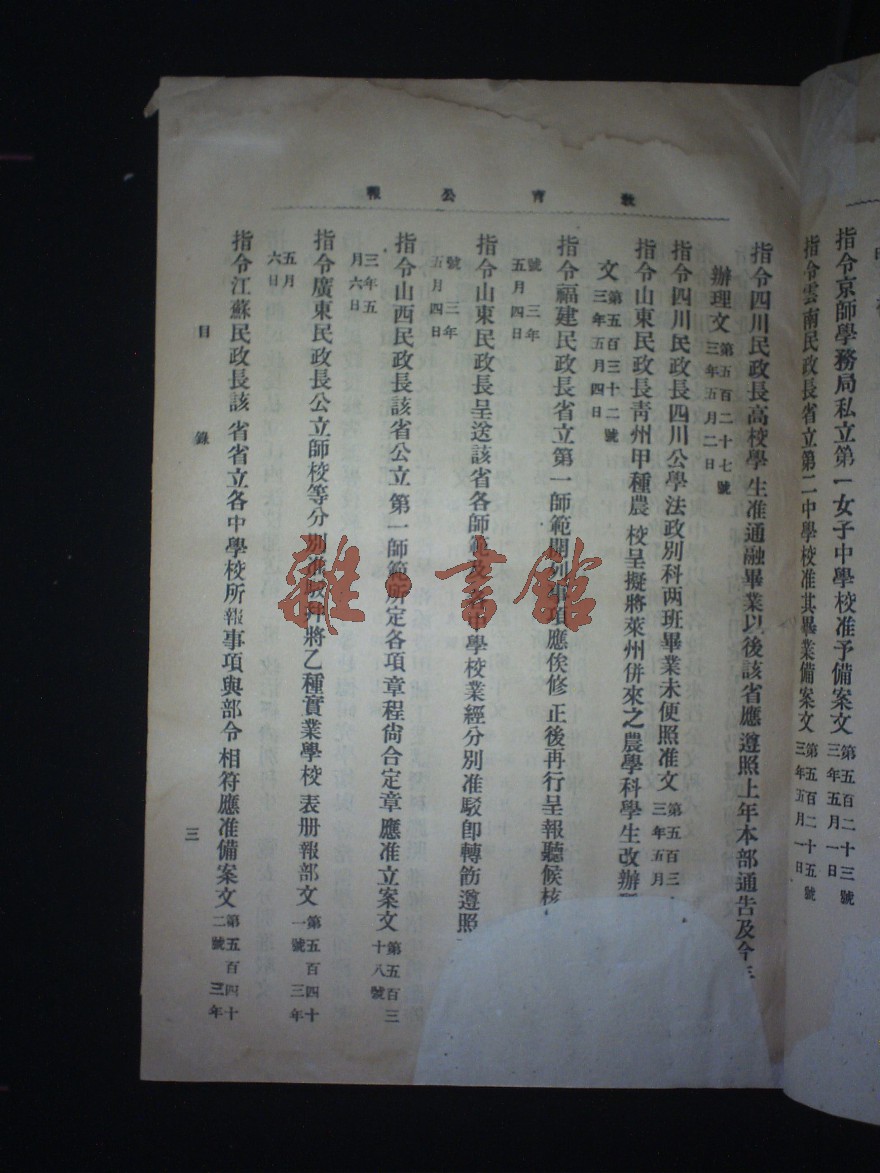 指令京師學務局私立第一女子中學校准予備案文 第五百二十三號
三年五月一日
指令雲南民政長省立第二中學校准其畢業備案文 第五百二十五號
三年五月一日
教育公報
指令四川民政長高校學生准通融畢業以後該省應遵照上年本部通告及今年
辦理文 第五百二十七號
三年五月二日
指令四川民政長四川公學法政別科两班畢業未便照准文 第五百三
三年五月
指令山東民政長青州甲種農校呈擬將萊州併來之農學科學生改辦
文 第五百三十二號
三年五月四日
指令福建民政長省立第一師範開列事項應俟修正後再行呈報聽候核
號 三年
五月四日
指令山東民政長呈送該省各師範及各中學校業經分別准駁卽轉飭遵照
號 三年
五月四日
指令山西民政長該省公立第一師範所定各項章程尙合定章應准立案文 第五百三
十八號
三年五
月六日
指令廣東民政長公立師校等分別准駁幷將乙種實業學校表册報部文 第五百四十
一號 三年
五月
六日
指令江蘇民政長該省省立各中學校所報事項與部令相符應准備案文 第五百四十
二號 三年
目錄
三
雜·書館